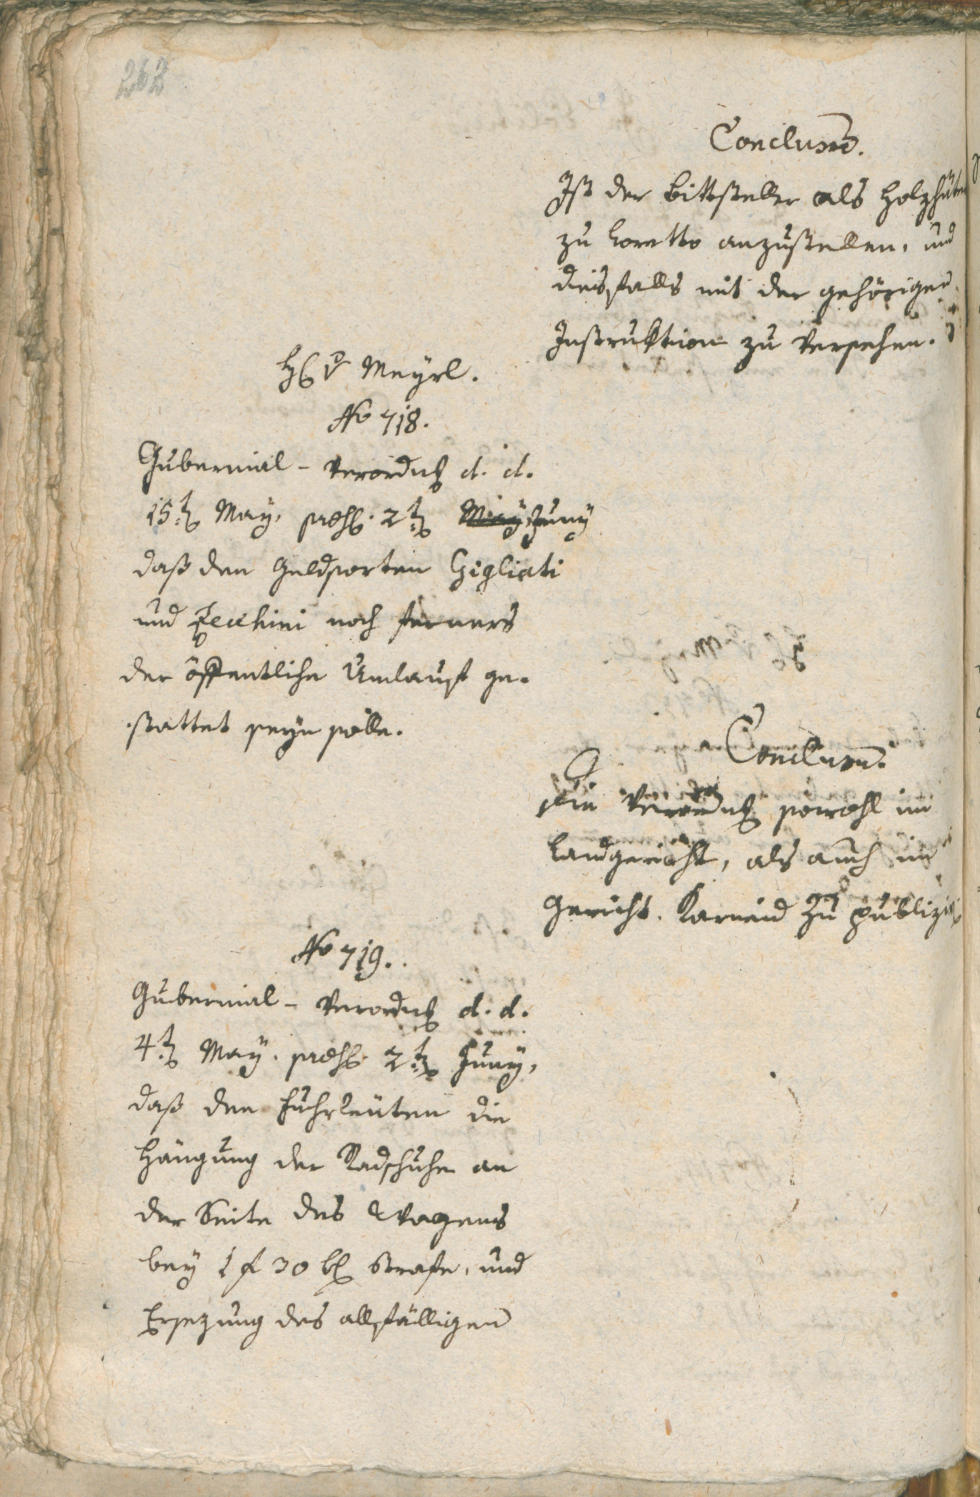 262
Conclusum.
Ist der Bittsteller als Holzhüter
zu Loretto anzustellen, und
diesfalls mit der gehörigen
Instruktion zu versehen.
H: v Meÿrl.
No 718.
Gubernial-Verordng d. d.
15t May, präs. 2t May Juny
daß den Geldsorten Gigliati
und Zecchini noch ferners
der öffentliche Umlauf ge-
stattet seyn solle.
Conclusum.
Die Verordng sowohl im
Landgericht, als auch im
Gericht Karneid zu publizi
No 719.
Gubernial-Verordng d. d.
4t May. präs. 2t Juny,
daß den Fuhrleuten die
Hängung der Radschuhe an
der Seite des Wagens
bey 1 f 30 kr Strafe, und
Ersezung des allfälligen